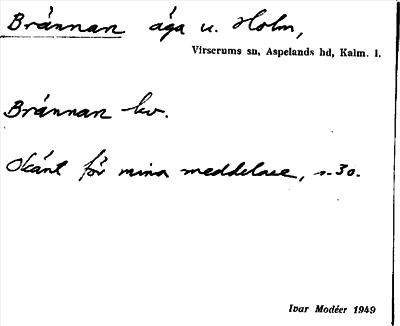 Bránnan äga u. Holm,
Virserums sn, Aspelands hd, Kalm. l.
Bránnan kv.
Okänt för mina meddelare, s. 30.
Ivar Modéer 1949